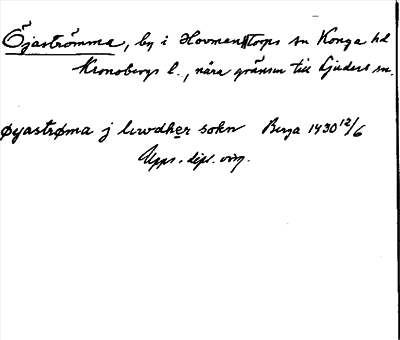 Öjaströmma, by i Hovmantorps sn Konga hd
Kronobergs l., nära gränsen till Ljuders sn.
øyastrøma j liwdher sokn Berga 1430 12/6
Upps. dipl. vinj.